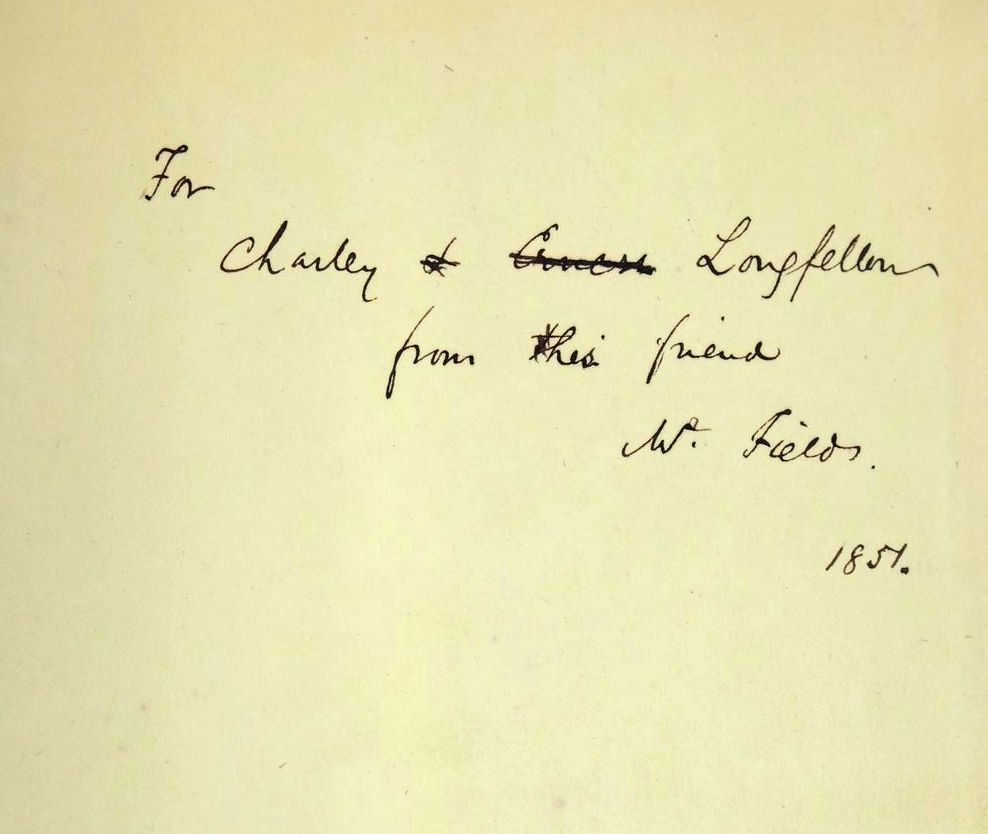 For
Charley & Ernest Longfellow
from his friend
Mr. Fields.
1851.